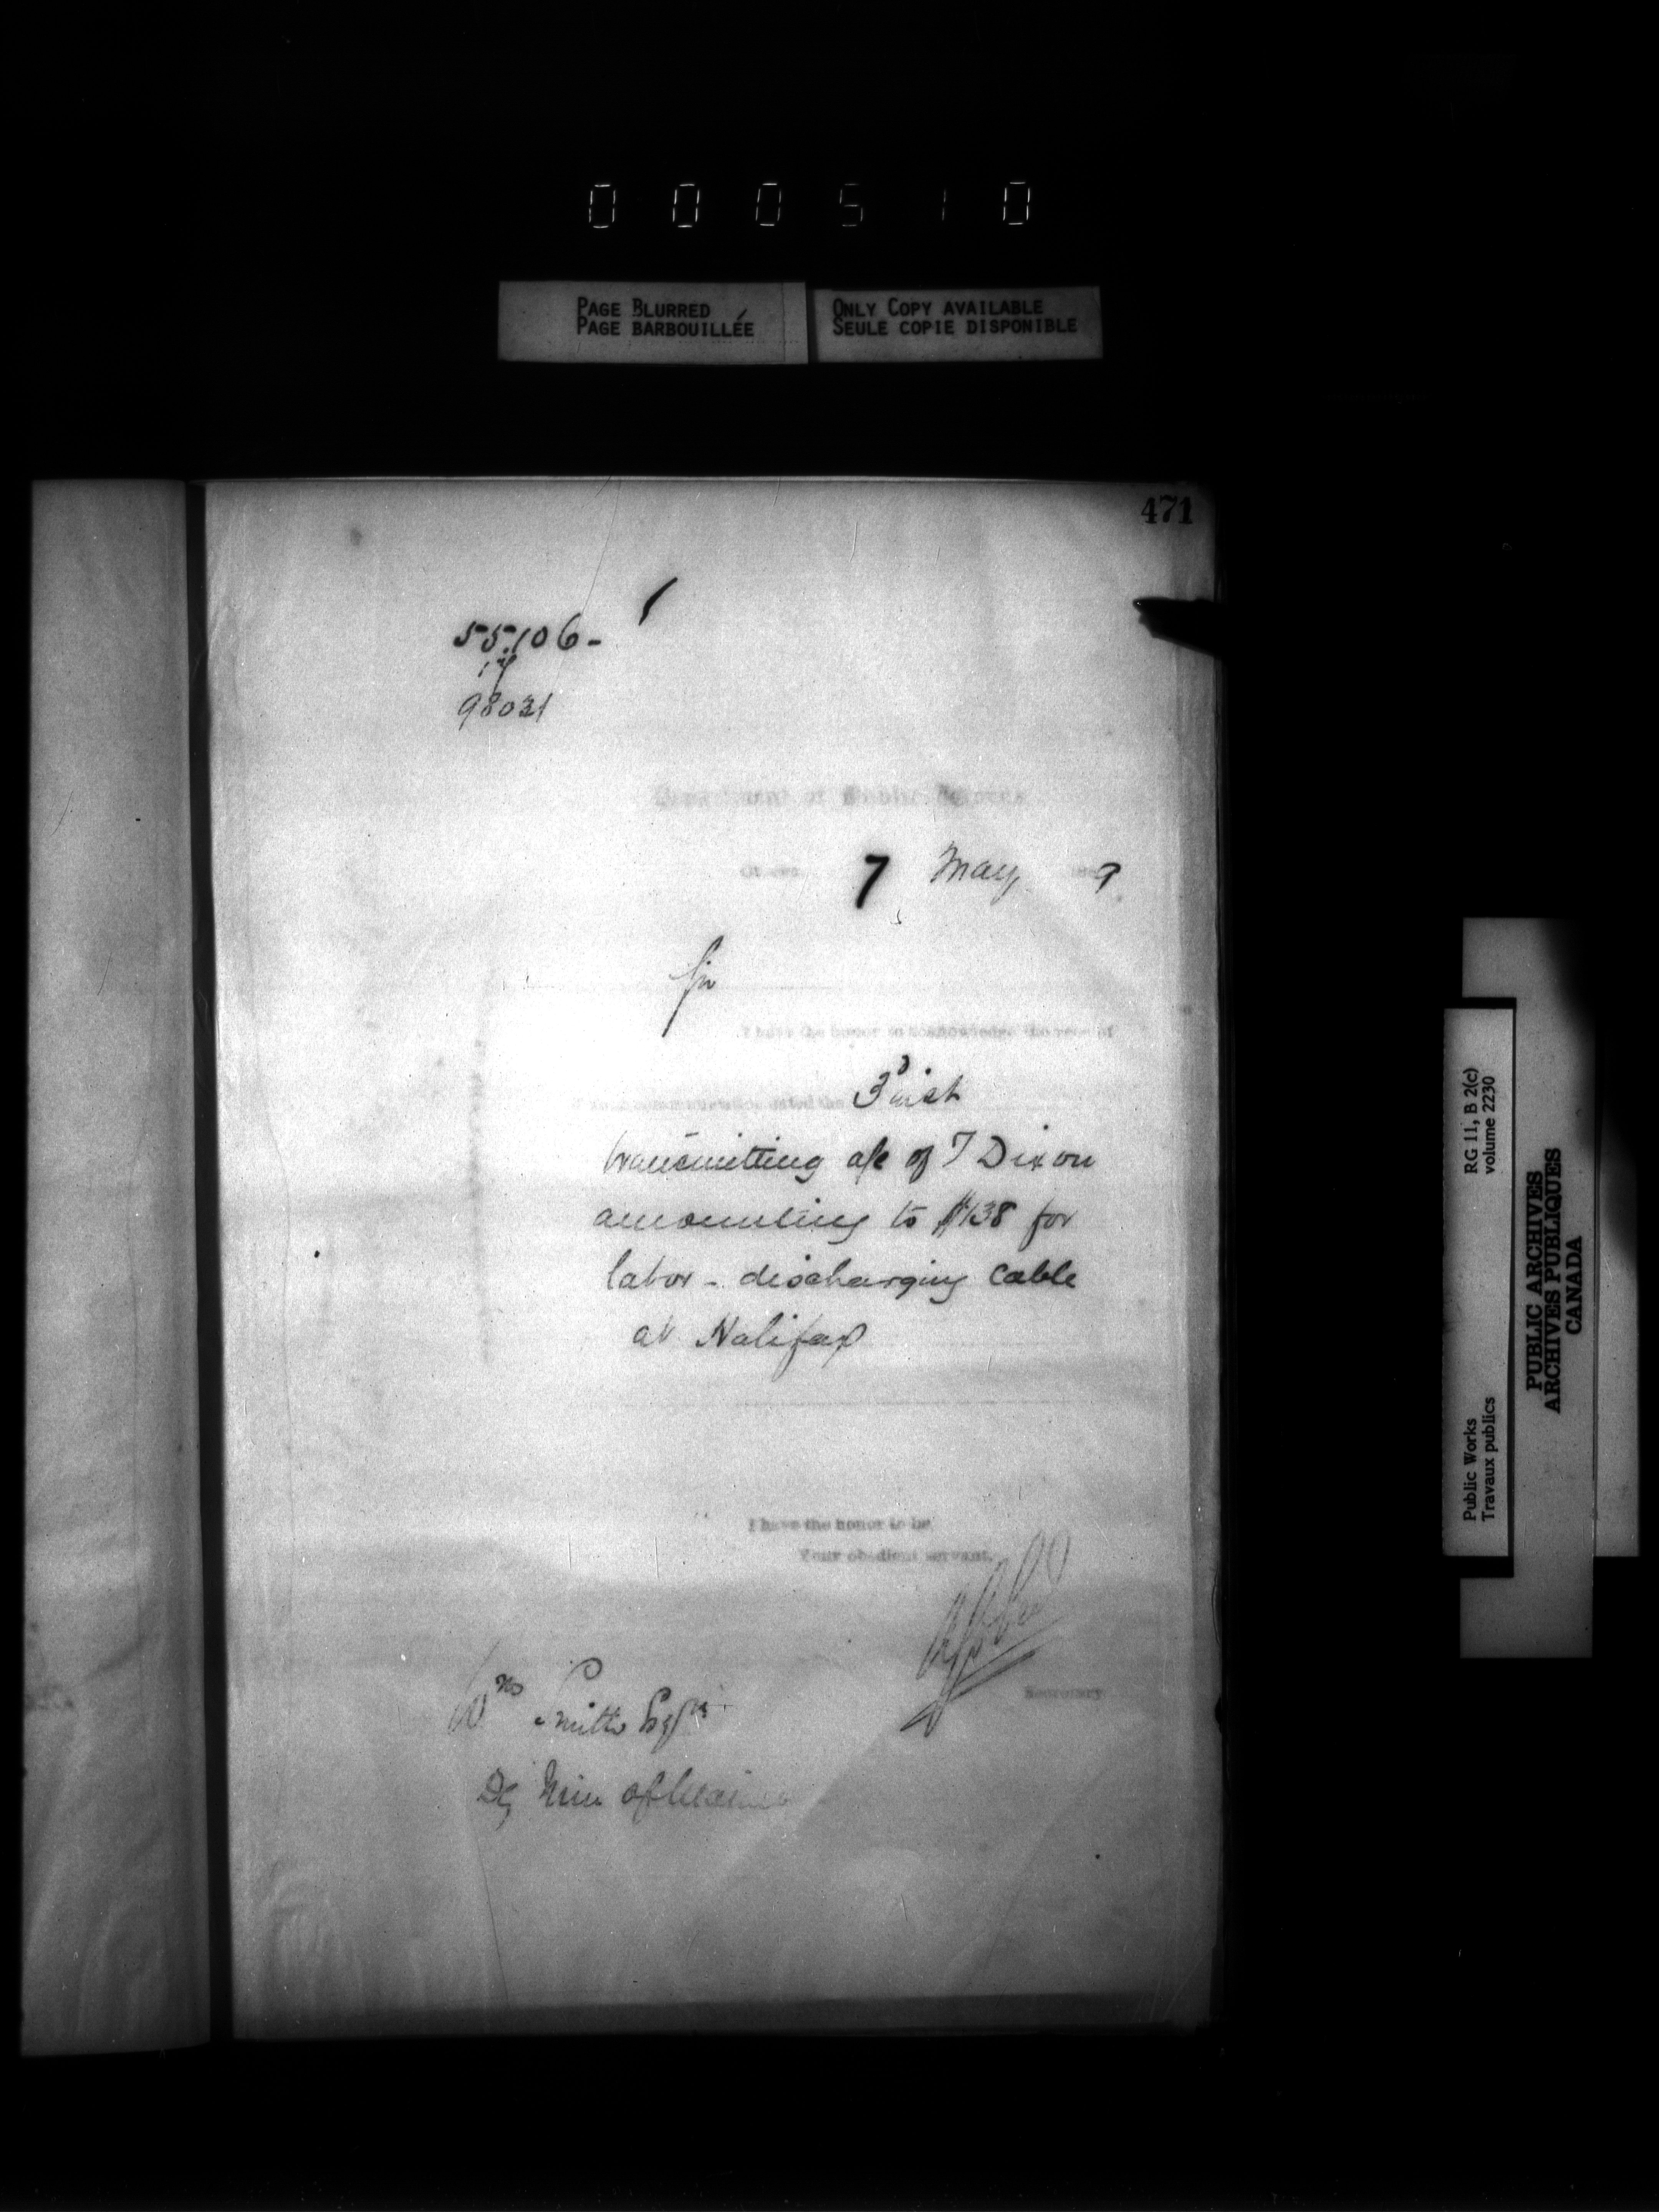 000510
PAGE BLURRED
PAGE BARBOUILLÉE
ONLY COPY AVAILABLE
SEULE COPIE DISPONIBLE
471
55106-
98031
Department of Public Works
Ottawa, 7 May 1889.
Sir
I have the honor to acknowledge the receipt of
your communication dated the 3d inst
transmitting a/c of T Dixon
amounting to $138 for
labor - discharging cable
at Halifax
I have the honor to be
Your obedient servant,
Secretary
Wm Smith Esqre
Dy Min of Marine
Public Works
Travaux publics
RG 11, B 2(c)
volume 2230
PUBLIC ARCHIVES
ARCHIVES PUBLIQUES
CANADA